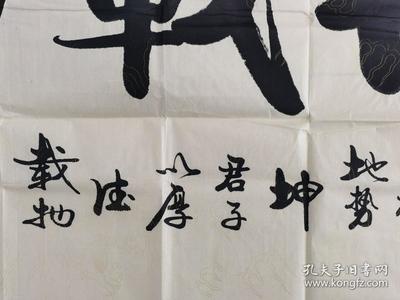 地勢
坤
君子
以厚
德
載物
孔夫子旧书网
www.kongfz.com